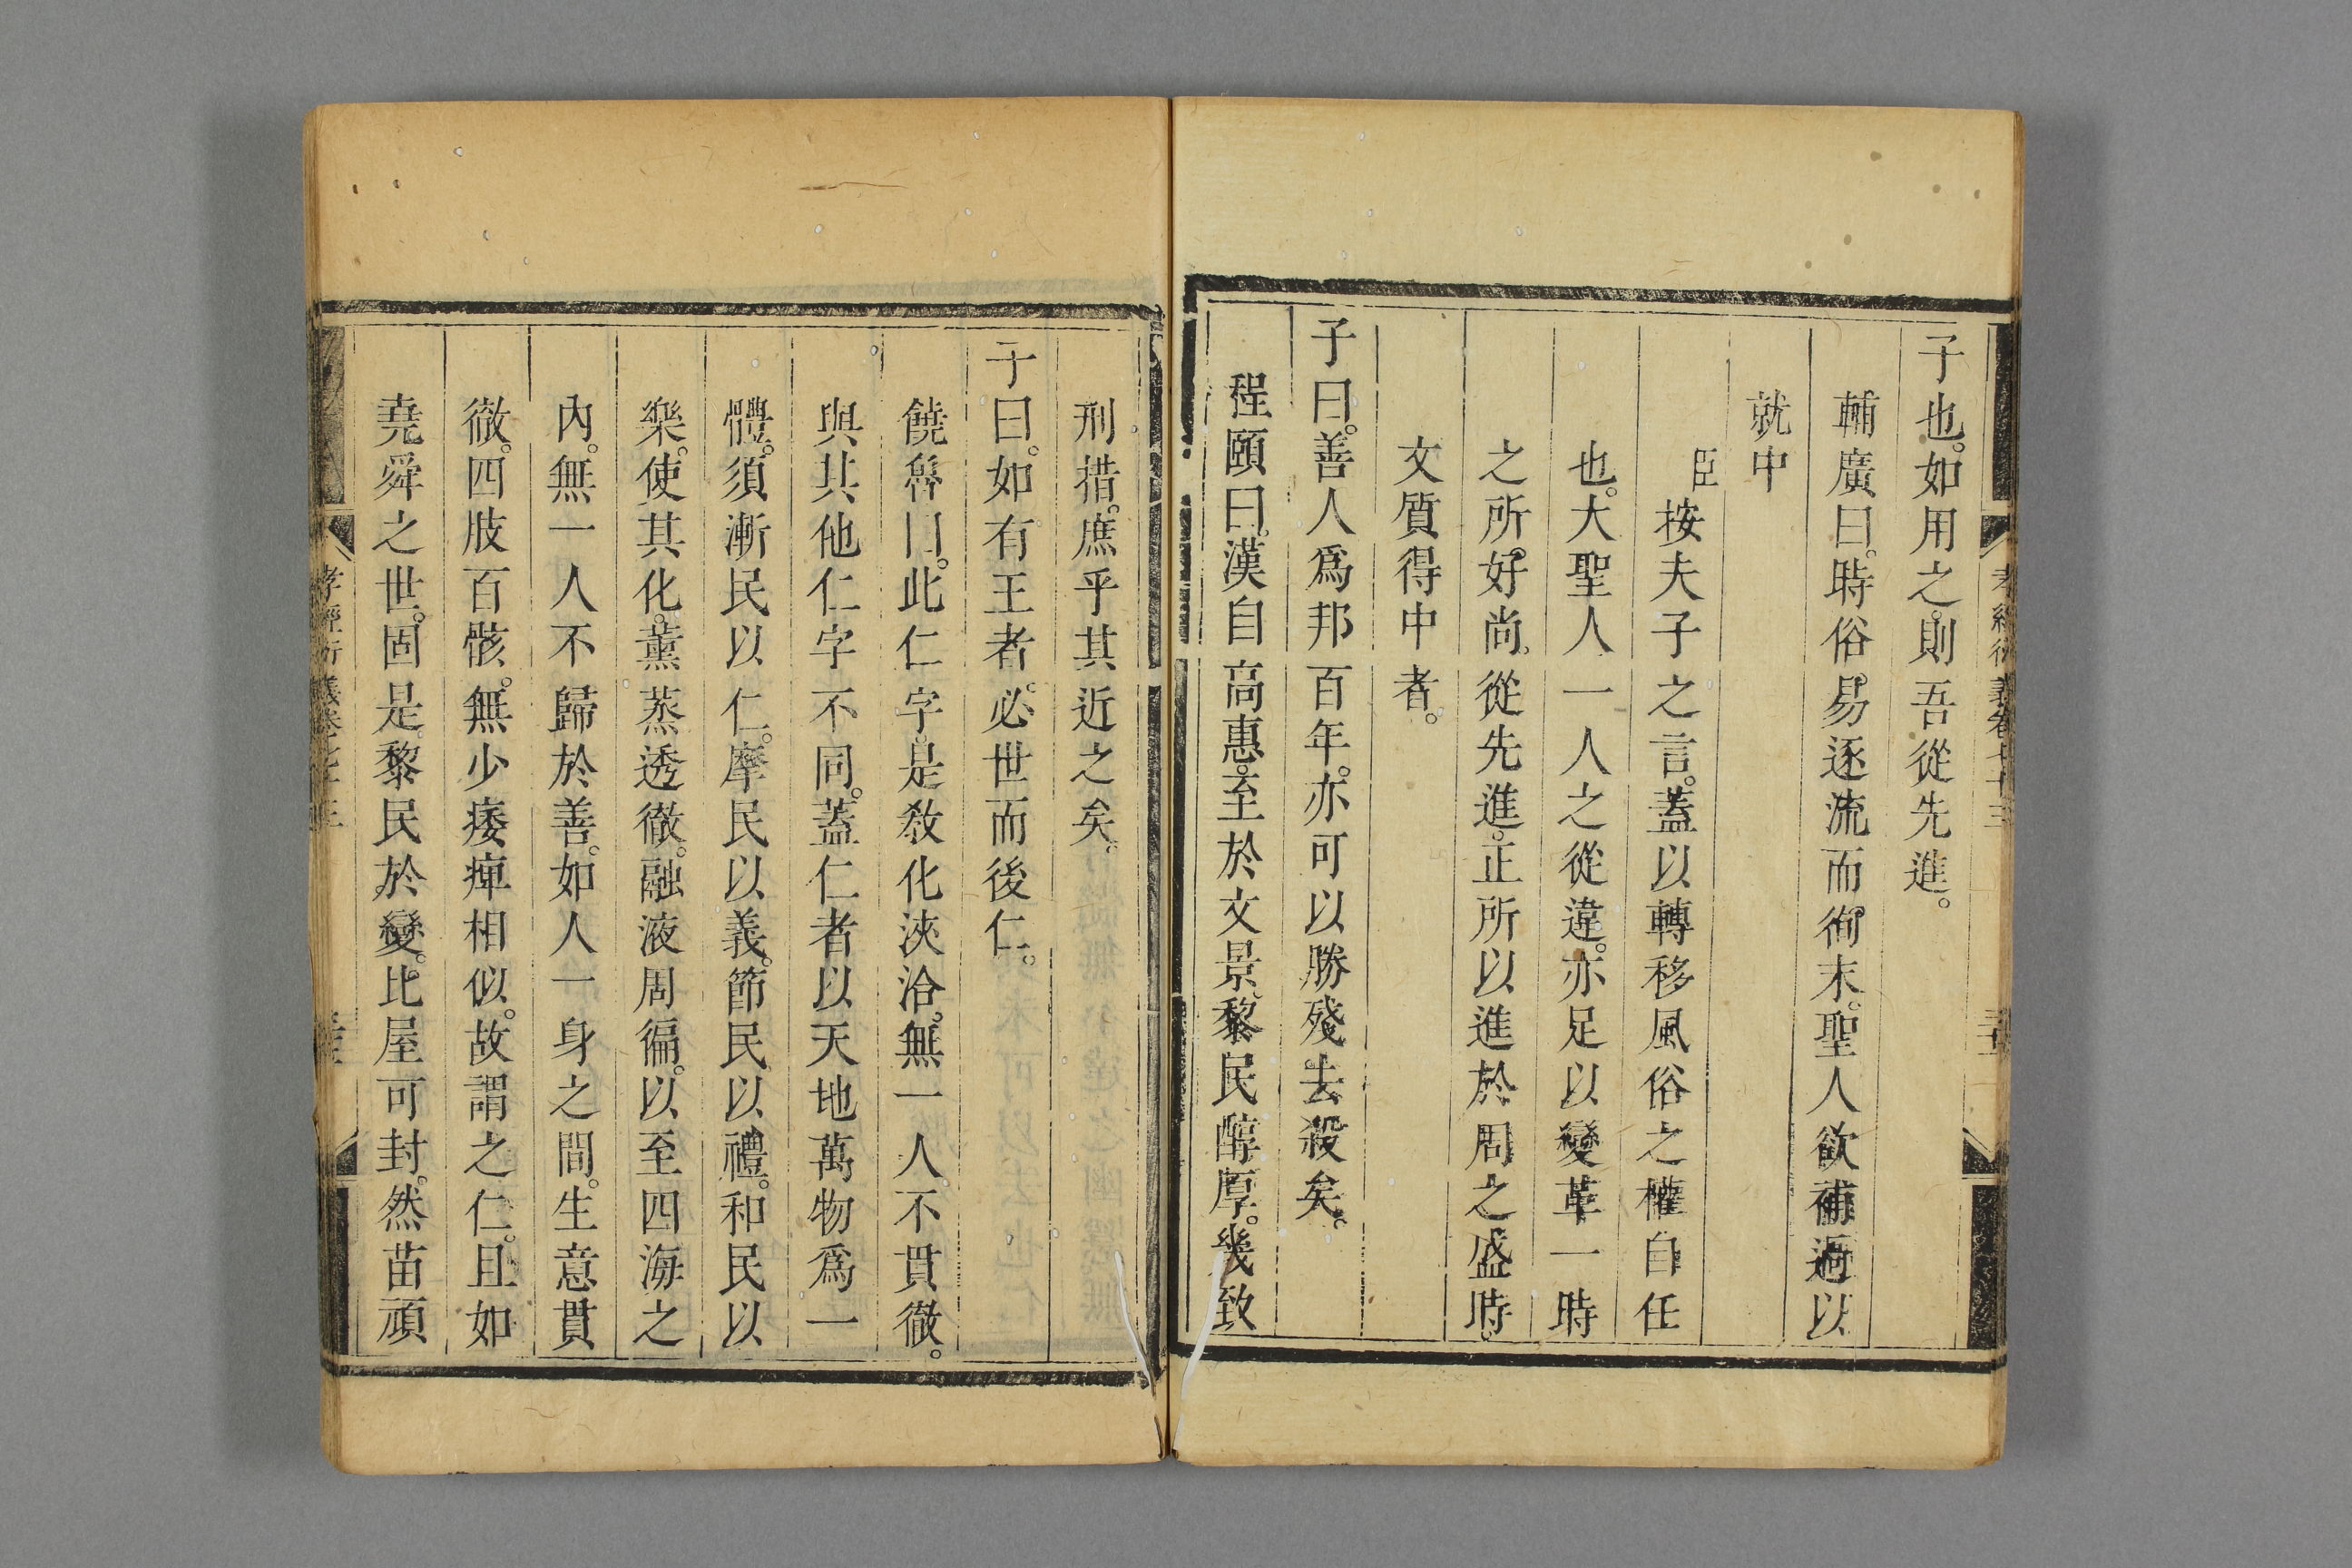 子也。如用之。則吾從先進。
輔廣曰。時俗易逐流而徇末。聖人欲補過以
就中
臣按夫子之言。蓋以轉移風俗之權自任
也。大聖人一人之從違。亦足以變革一時
之所好尚。從先進。正所以進於周之盛時。
文質得中者。
子曰。善人爲邦百年。亦可以勝殘去殺矣。
程頤曰。漢自高惠。至於文景。黎民醇厚。幾致
刑措。庶乎其近之矣。
子曰。如有王者。必世而後仁。
饒魯曰。此仁字。是敎化浹洽。無一人不貫徹。
與其他仁字不同。蓋仁者以天地萬物爲一
體。須漸民以仁。摩民以義。節民以禮。和民以
樂。使其化。薰蒸透徹。融液周徧。以至四海之
內。無一人不歸於善。如人一身之間。生意貫
徹。四肢百骸。無少痿痺相似。故謂之仁。且如
堯舜之世。固是黎民於變。比屋可封。然苗頑
孝經衍義卷七十三